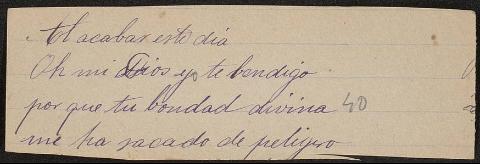 Al acabar este dia
Oh mi Dios yo te bendigo
por que tu bondad divina 40
me ha sacado de peligro